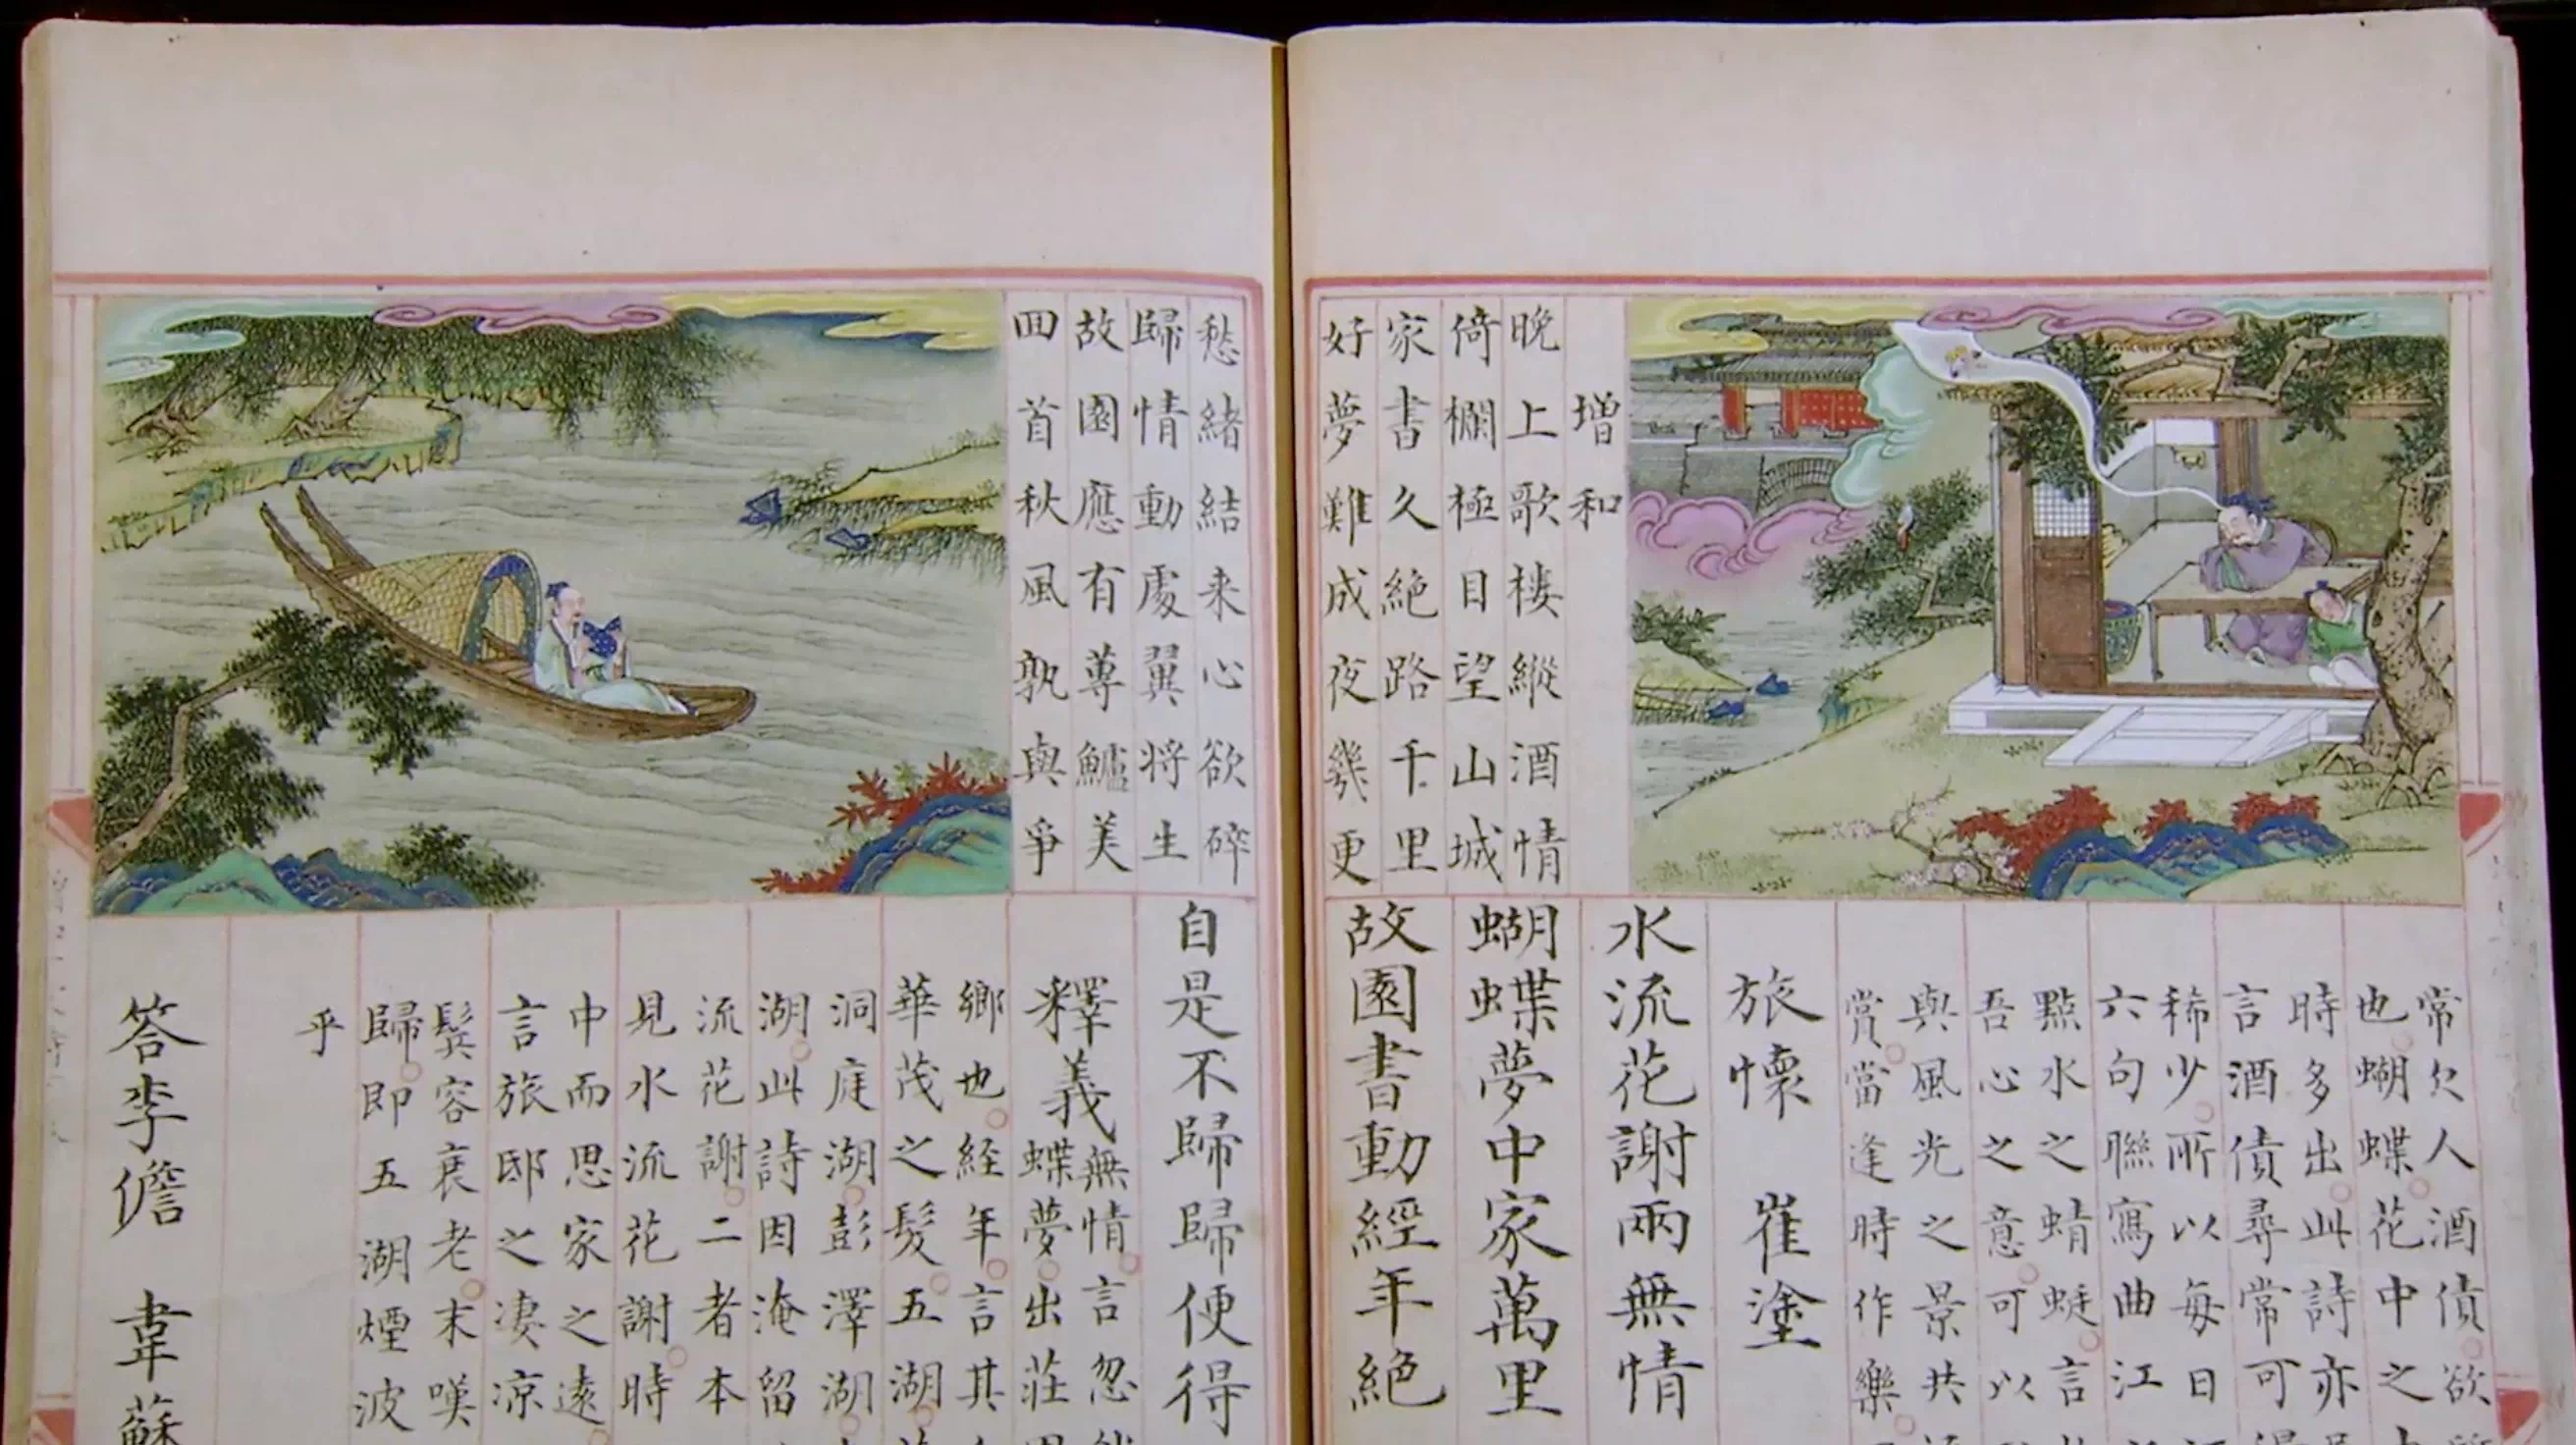 增和
晚上歌樓縱酒情
倚欄極目望山城
家書久絕路千里
好夢難成夜幾更
常欠人酒債欲
也蝴蝶花中之
時多出此詩亦
言酒債尋常可
稀少所以每日
六句聯寫曲江
點水之蜻蜓言
吾心之意可以
與風光之景共
賞當逢時作樂
旅懷 崔塗
水流花謝兩無情
蝴蝶夢中家萬里
故園書動經年絕
愁緒結来心欲碎
歸情動處翼将生
故園應有蓴鱸美
囬首秋風孰與爭
自是不歸歸便得
釋義 無情言忽
蝶夢出莊
鄉也経年言其
華茂之髮五湖
洞庭湖彭澤湖
湖此詩因淹留
流花謝二者本
見水流花謝時
中而思家之遠
言旅邸之凄凉
鬂容衰老末嘆
歸即五湖煙波
乎
答李儋 韋蘇